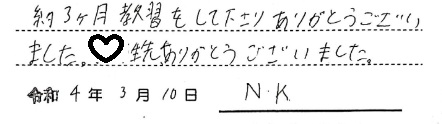 約3ヶ月教習をして下さりありがとうござい
ました。♡ 先生ありがとうございました。
令和 4 年 3 月 10 日 N.K